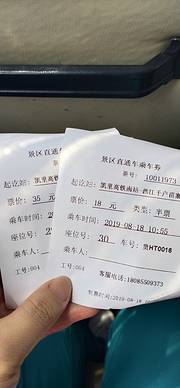 景区直通车乘车券
票号:
起讫站: 凯里高铁南站
票价: 35 元
乘车时间: 20
座位号: 2
乘车人:
工号:004
景区直通车乘车券
票号: 10011973
起讫站: 凯里高铁南站 西江千户苗寨
票价: 18 元 类型: 半票
乘车时间: 2019-08-18 10:55
座位号: 30 车号: 贵HT0016
乘车人:
工号:004 客服电话:18085509373
售票时间:2019-08-18